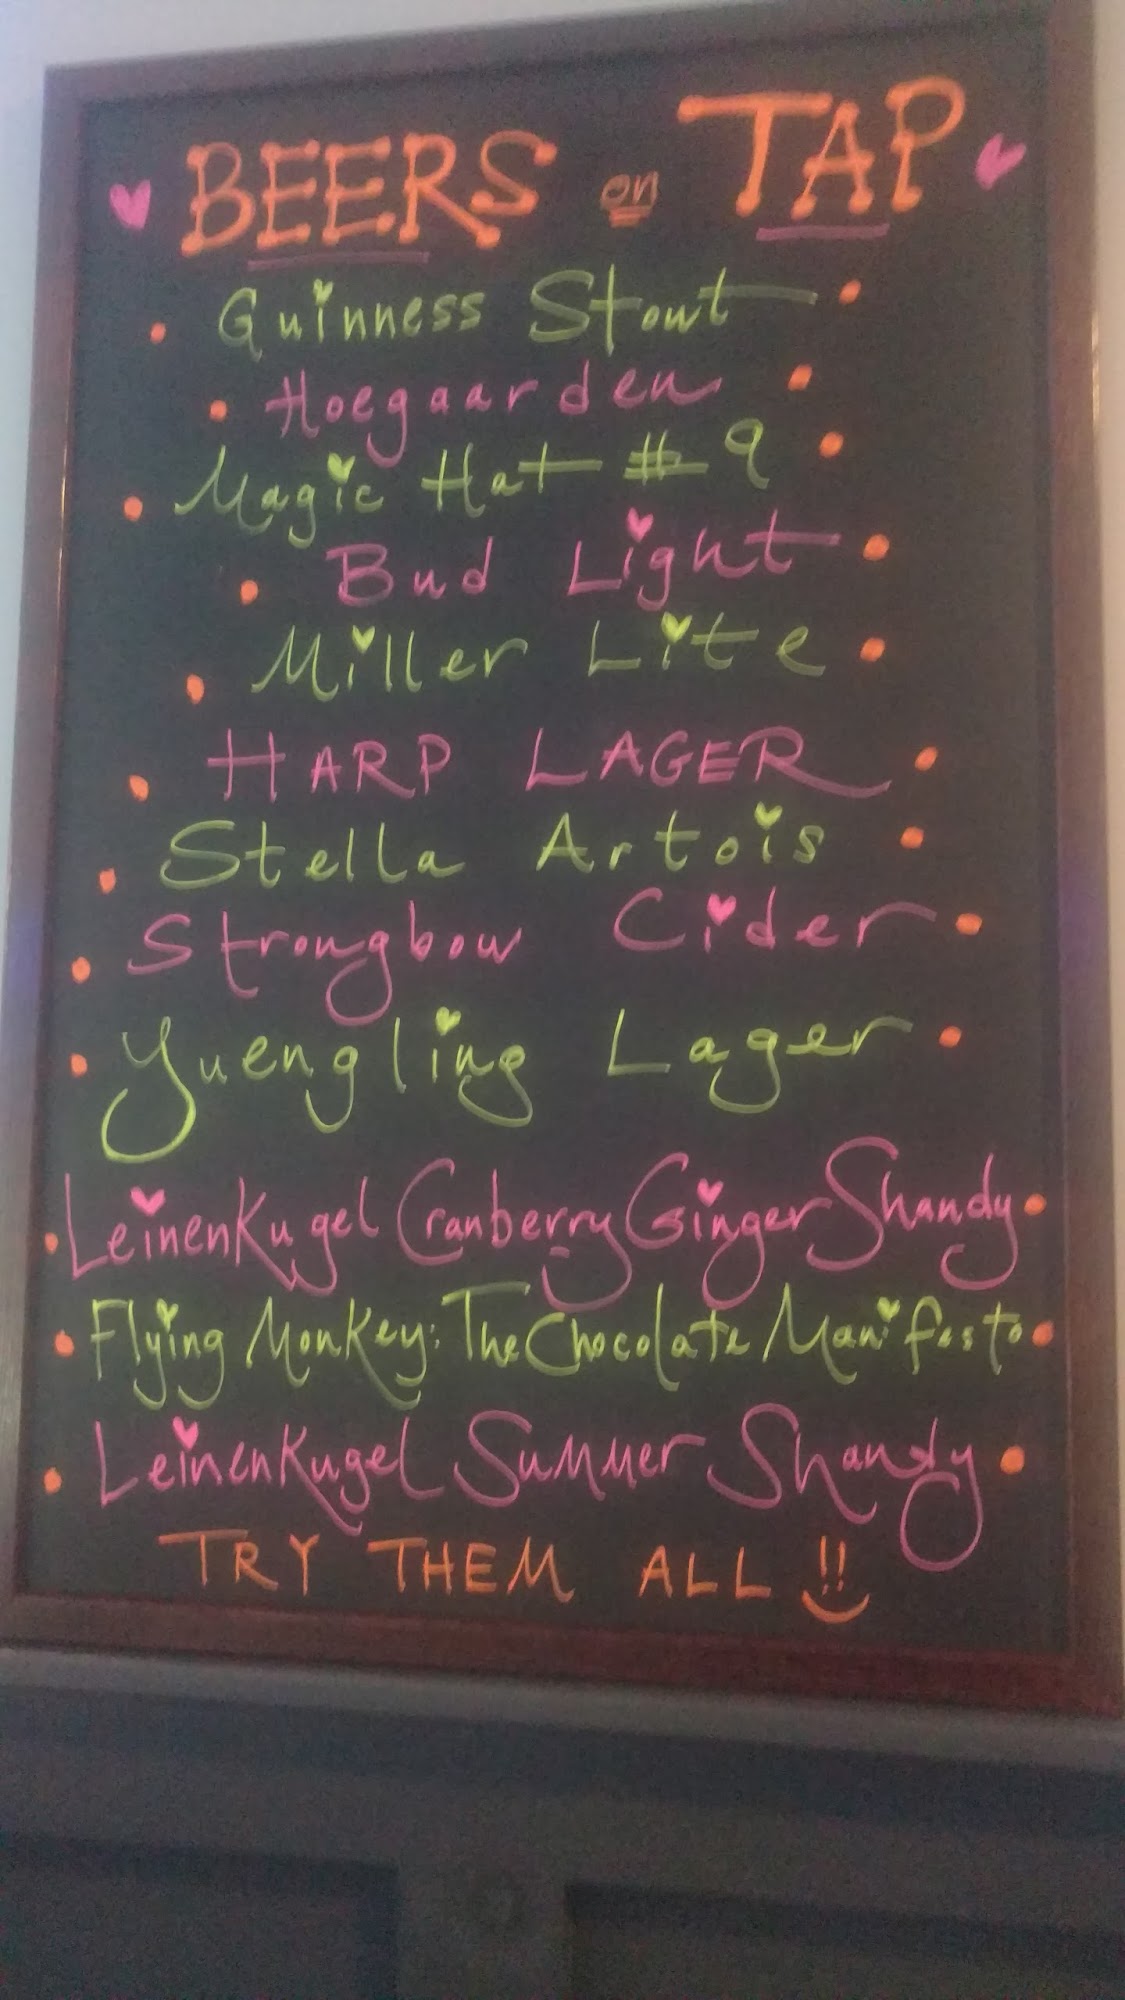 BEERS on TAP
Guinness Stout
Hoegaarden
Magic Hat #9
Bud Light
Miller Lite
HARP LAGER
Stella Artois
Strongbow Cider
Yuengling Lager
LeinenKugel Cranberry Ginger Shandy
Flying Monkey: The Chocolate Manifesto
LeinenKugel Summer Shandy
TRY THEM ALL !!